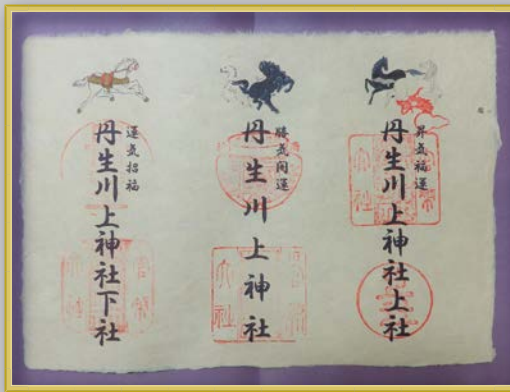 昇氣福運
丹生川上神社上社
丹生川上神社
運氣招福
丹生川上神社下社